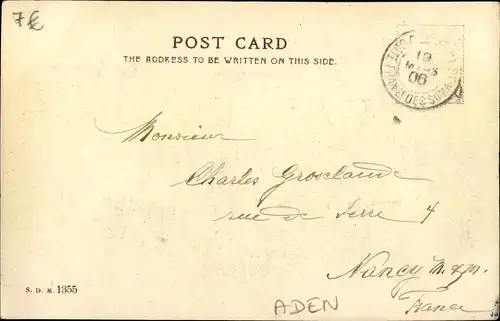 7€
POST CARD
THE ADDRESS TO BE WRITTEN ON THIS SIDE.
19
MARS
06
Monsieur
Charles Grosclaude
rue de Serre 4
Nancy M. &
France
S. D. M. 1355
ADEN